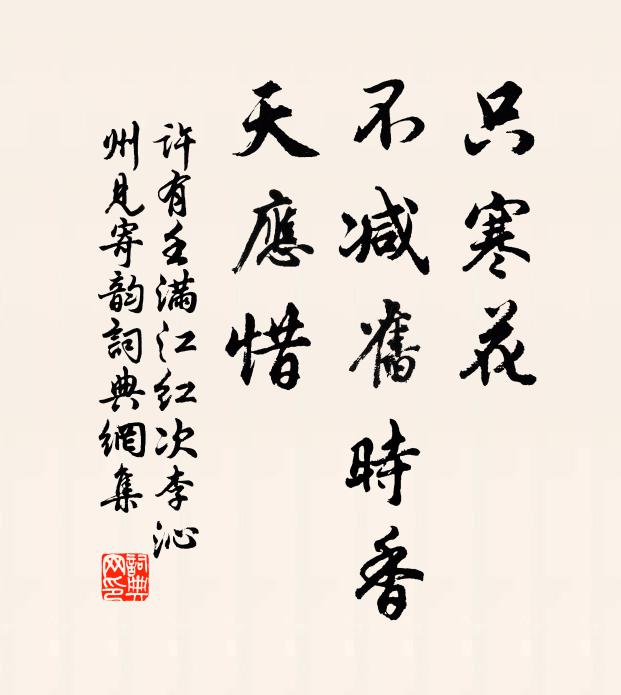 只寒花
不减舊時香
天應惜
許有壬滿江红次李沁
州見寄韵詞典網集
詞典
网印